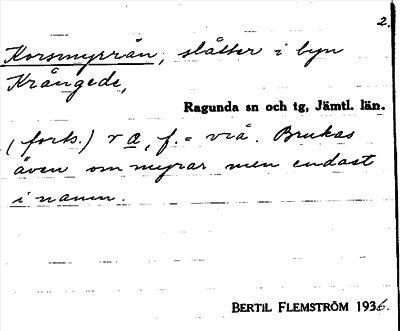 2.
Korsmyrrån, slåtter i byn
Krångede,
Ragunda sn och tg, Jämtl. län.
(forts.) r a, f. = vrå. Brukas
även om myrar men endast
i namn.
BERTIL FLEMSTRÖM 1936.